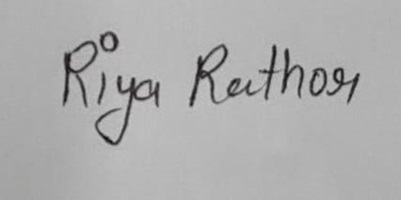 Riya Rathor